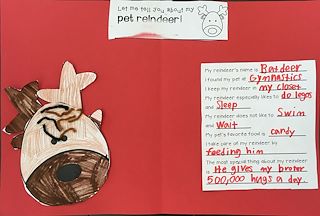 Let me tell you about my
pet reindeer!
My reindeer's name is Reideer
I found my pet at Gymnastics
I keep my reindeer in my closet
My reindeer especially likes to do legos
and Sleep
My reindeer does not like to Swim
and Wait
My pet's favorite food is candy
I take care of my reindeer by
feeding him
The most special thing about my reindeer
is He gives my broter
500,000 hugs a day.